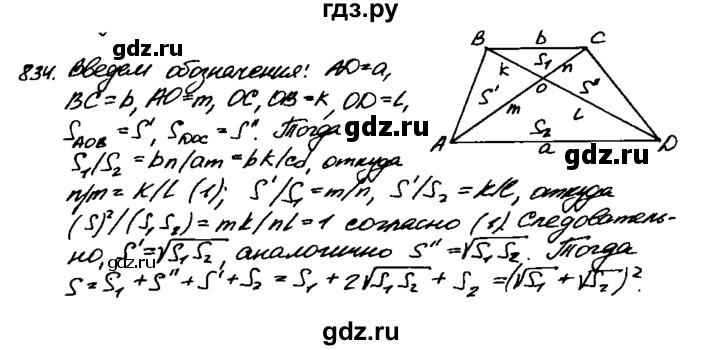 гдз.ру
834. Введем обозначения: AD=a,
BC=b, AO=m, OC, OB=k, OD=l,
S_AOB = S', S_DOC = S''. Тогда
S₁/S₂ = bn/am = bk/cd, откуда
n/m = k/l (1); S'/S₁ = m/n, S'/S₂ = k/l, откуда
(S')²/(S₁S₂) = mk/nl = 1 согласно (1). Следователь-
но, S' = √S₁S₂, аналогично S'' = √S₁S₂. Тогда
S = S₁ + S'' + S' + S₂ = S₁ + 2√S₁S₂ + S₂ = (√S₁ + √S₂)².
B b C
S₁
k n
S' O S''
m l
S₂
A a D
gdz.ru
gdz.ru